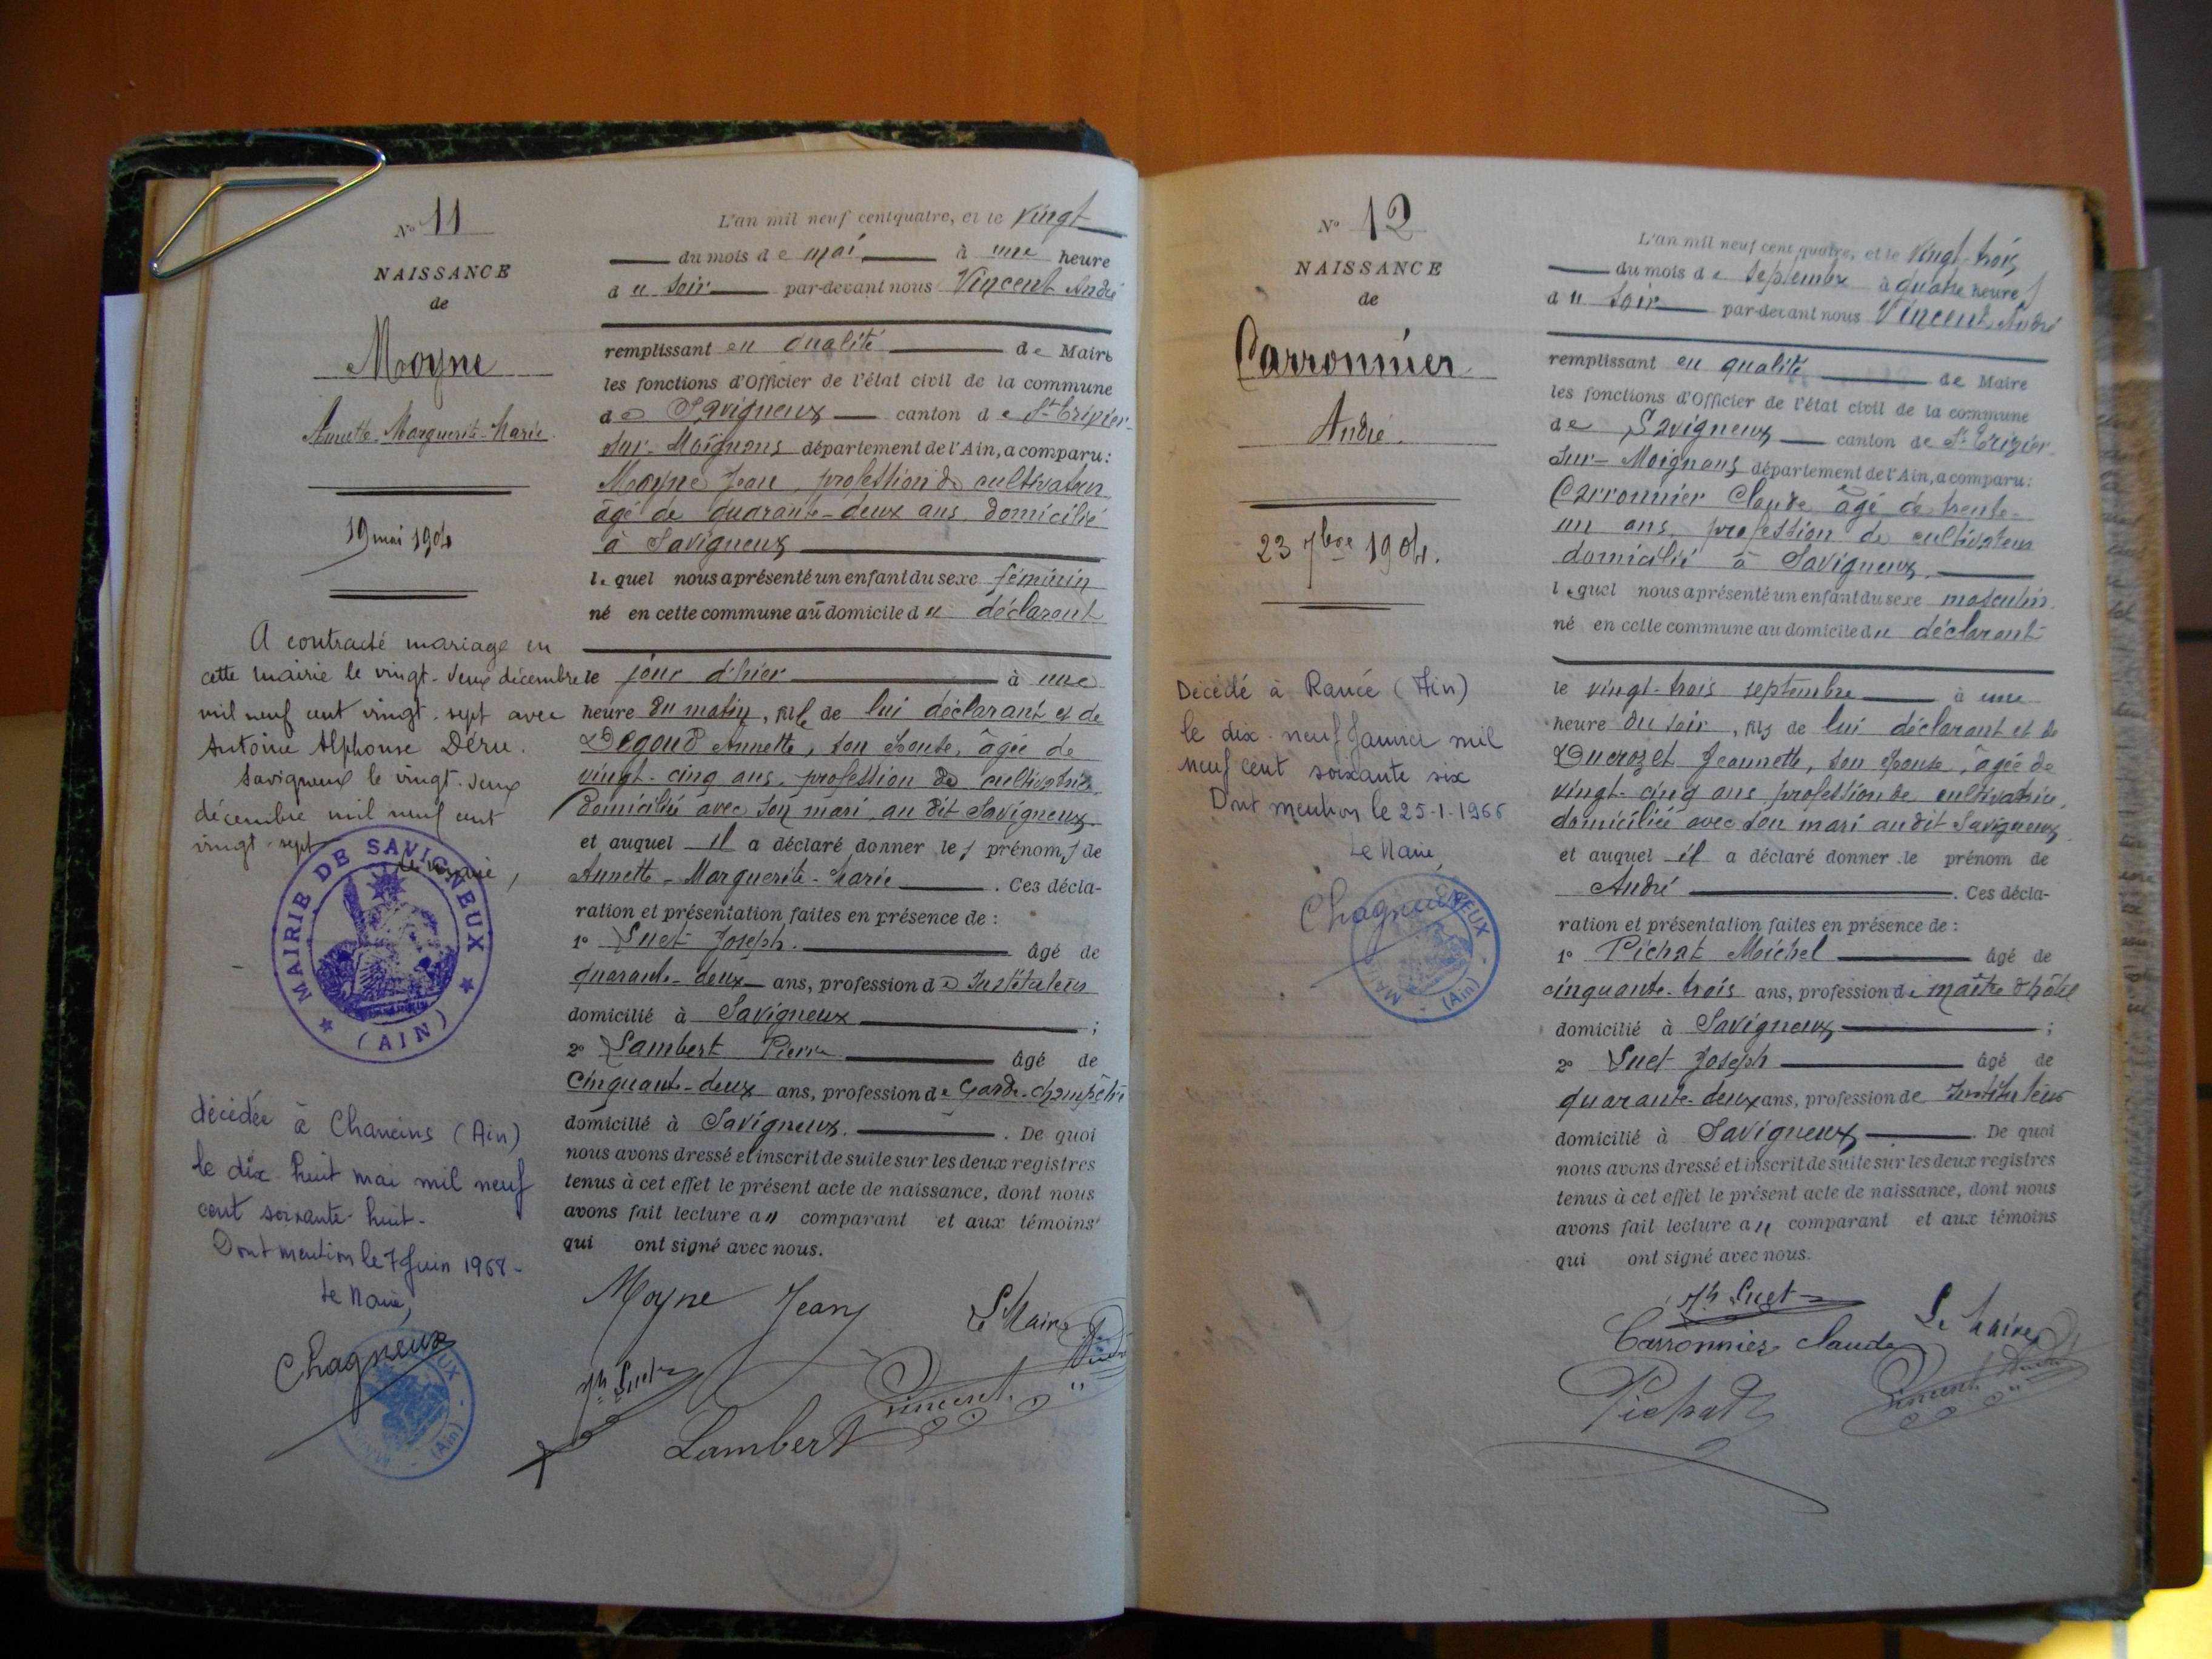 N° 11
NAISSANCE
de
Moyne
Annette-Marguerite-Marie
19 mai 1904
A contracté mariage en
cette mairie le vingt-deux décembre
mil neuf cent vingt-sept avec
Antoine Alphonse Déru.
Savigneux le vingt-deux
décembre mil neuf cent
vingt-sept
Le Maire,
MAIRIE DE SAVIGNEUX
(AIN)
décédée à Chaneins (Ain)
le dix huit mai mil neuf
cent soixante-huit-
Dont mention le 7 Juin 1968-
Le Maire,
Chagneux
(Ain)
L'an mil neuf cent quatre, et le vingt
du mois de mai à une heure
du soir par-devant nous Vincent André
remplissant en qualité de Maire
les fonctions d'Officier de l'état civil de la commune
de Savigneux canton de St Trivier-
sur-Moignans département de l'Ain, a comparu:
Moyne Jean, profession de cultivateur
âgé de quarante-deux ans, domicilié
à Savigneux
lequel nous a présenté un enfant du sexe féminin
né en cette commune au domicile du déclarant
le jour d'hier à une
heure du matin, fille de lui déclarant et de
Degoud Annette, son épouse, âgée de
vingt-cinq ans, profession de cultivatrice,
domiciliée avec son mari, au dit Savigneux
et auquel il a déclaré donner les prénoms de
Annette-Marguerite-Marie. Ces décla-
ration et présentation faites en présence de :
1° Suet Joseph. âgé de
quarante-deux ans, profession d'Instituteur
domicilié à Savigneux ;
2° Lambert Pierre âgé de
Cinquante-deux ans, profession de Garde-champêtre
domicilié à Savigneux. De quoi
nous avons dressé et inscrit de suite sur les deux registres
tenus à cet effet le présent acte de naissance, dont nous
avons fait lecture au comparant et aux témoins
qui ont signé avec nous.
Moyne Jean
Le Maire
Jh Suet
Vincent André
Lambert
N° 12
NAISSANCE
de
Carronnier
André.
23 7bre 1904.
Décédé à Rancé (Ain)
le dix-neuf Janvier mil
neuf cent soixante six
Dont mention le 25-1-1966
Le Maire,
Chagneux
(Ain)
L'an mil neuf cent quatre, et le vingt-trois
du mois de septembre à quatre heures
du soir par-devant nous Vincent André
remplissant en qualité de Maire
les fonctions d'Officier de l'état civil de la commune
de Savigneux canton de St Trivier-
sur-Moignans département de l'Ain, a comparu:
Carronnier Claude âgé de trente-
un ans, profession de cultivateur
domicilié à Savigneux.
lequel nous a présenté un enfant du sexe masculin
né en cette commune au domicile du déclarant
le vingt-trois septembre à une
heure du soir, fils de lui déclarant et de
Ducrozet Jeannette, son épouse, âgée de
vingt-cinq ans profession de cultivatrice,
domiciliée avec son mari audit Savigneux
et auquel il a déclaré donner le prénom de
André. Ces décla-
ration et présentation faites en présence de :
1° Pichat Michel âgé de
cinquante-trois ans, profession de maître d'hôtel
domicilié à Savigneux ;
2° Suet Joseph âgé de
quarante-deux ans, profession de Instituteur
domicilié à Savigneux. De quoi
nous avons dressé et inscrit de suite sur les deux registres
tenus à cet effet le présent acte de naissance, dont nous
avons fait lecture au comparant et aux témoins
qui ont signé avec nous.
Jh Suet
Le Maire
Carronnier Claude
Vincent André
Pichat